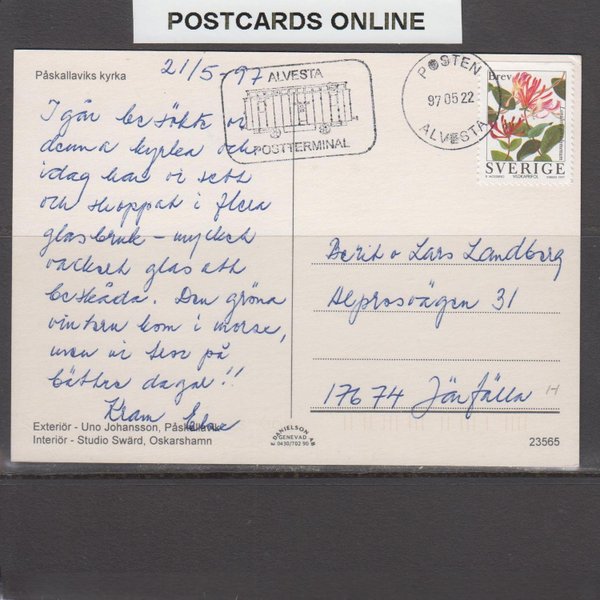 POSTCARDS ONLINE
Påskallaviks kyrka
21/5-97
I går besökte vi
denna kyrka och
idag har vi sett
och shoppat i flera
glasbruk – mycket
vackert glas att
beskåda. Den gröna
vintern kom i morse,
men vi tror på
bättre dagar!!
Kram
Exteriör - Uno Johansson, Påskallavik
Interiör - Studio Swärd, Oskarshamn
ALVESTA
POSTTERMINAL
POSTEN
97 05 22
ALVESTA
Brev
SVERIGE
VILDKAPRIFOL
Berit o Lars Landberg
Alprosvägen 31
17674 Järfälla
H
E. DANIELSON AB
GENEVAD
0430/702 90
23565